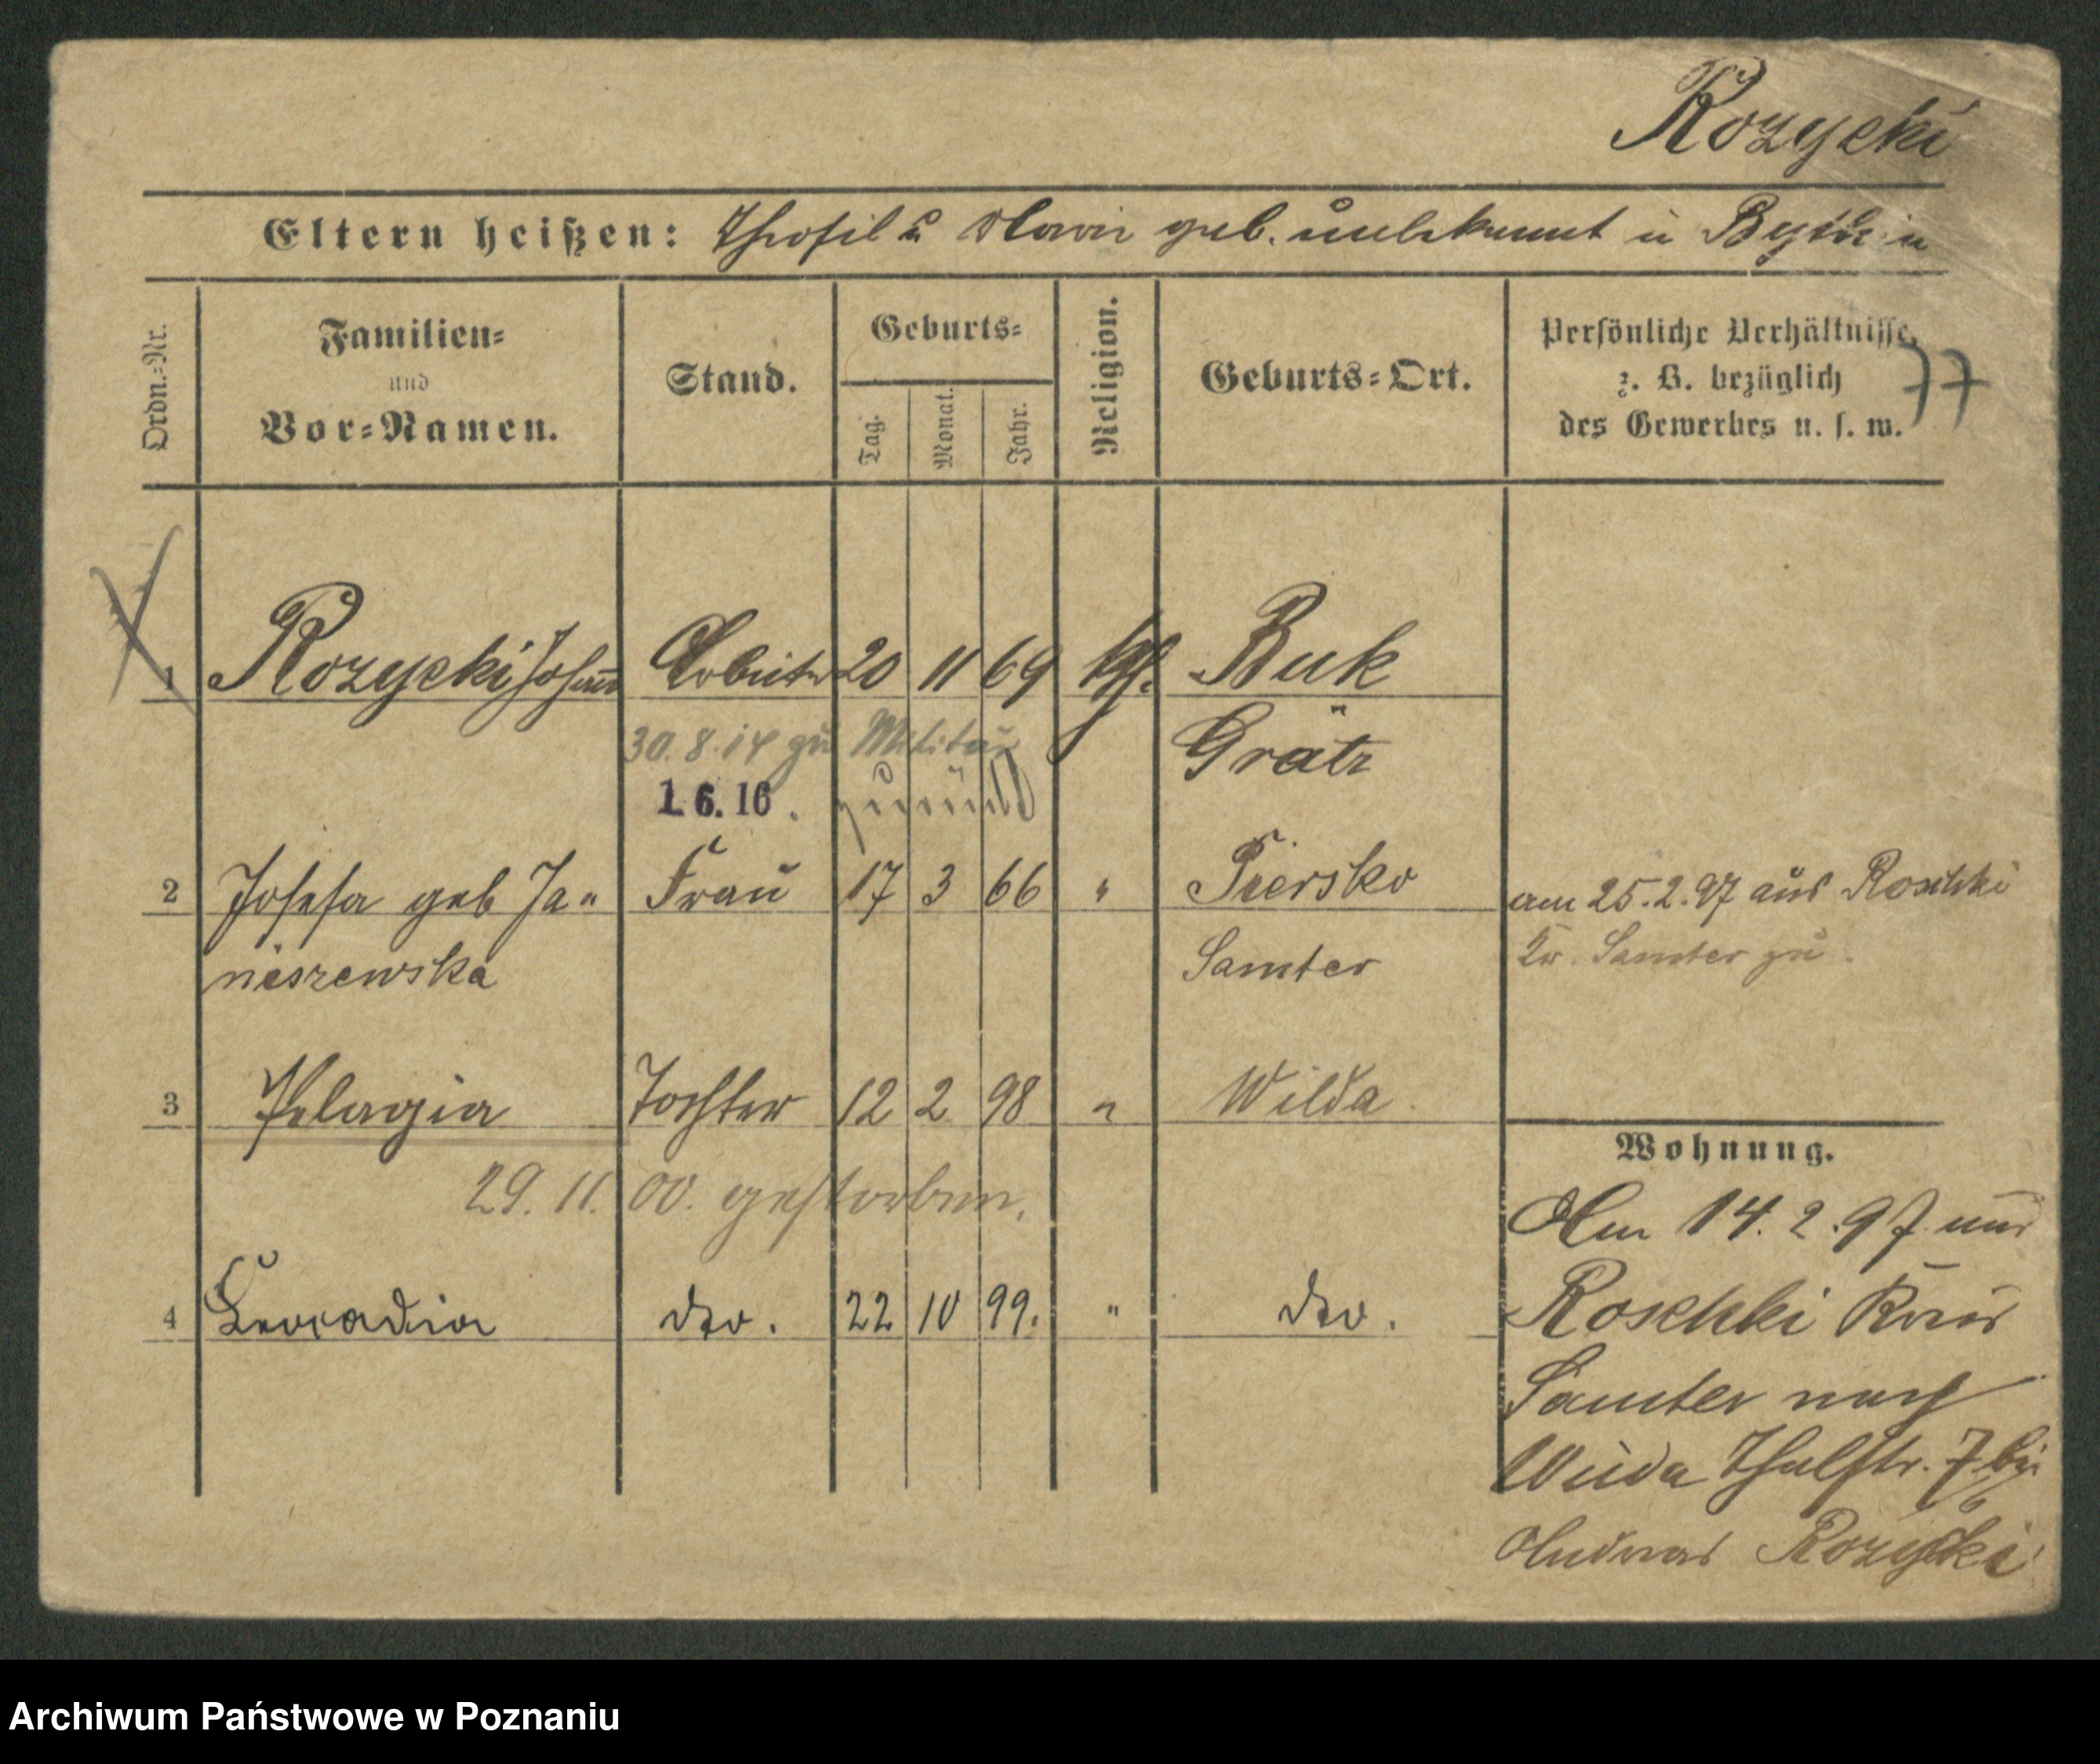 Rozycki
Eltern heißen: Theofil u Marie geb. unbekannt in Bythin
Ordn.-Nr.
Familien-
und
Vor-Namen.
Stand.
Geburts-
Tag.
Monat.
Jahr.
Religion.
Geburts-Ort.
Persönliche Verhältnisse,
z. B. bezüglich
des Gewerbes u. s. w.
77
1 Rozycki Johann Arbeiter 20 11 69 kath. Buk
30.8.14 zu Militär Grätz
1.6.16. zurück
2 Josefa geb Ja- Frau 17 3 66 " Piersko am 25.2.97 aus Roschki
niszewska Samter Kr. Samter zu.
3 Pelagia Tochter 12 2 98 " Wilda
29.11.00. gestorben.
4 Leocadia dto. 22 10 99. " dto.
Wohnung.
Am 14.2.97 von
Roschki Kreis
Samter nach
Wilda Thalstr. 7 bei
Andreas Rozycki
Archiwum Państwowe w Poznaniu